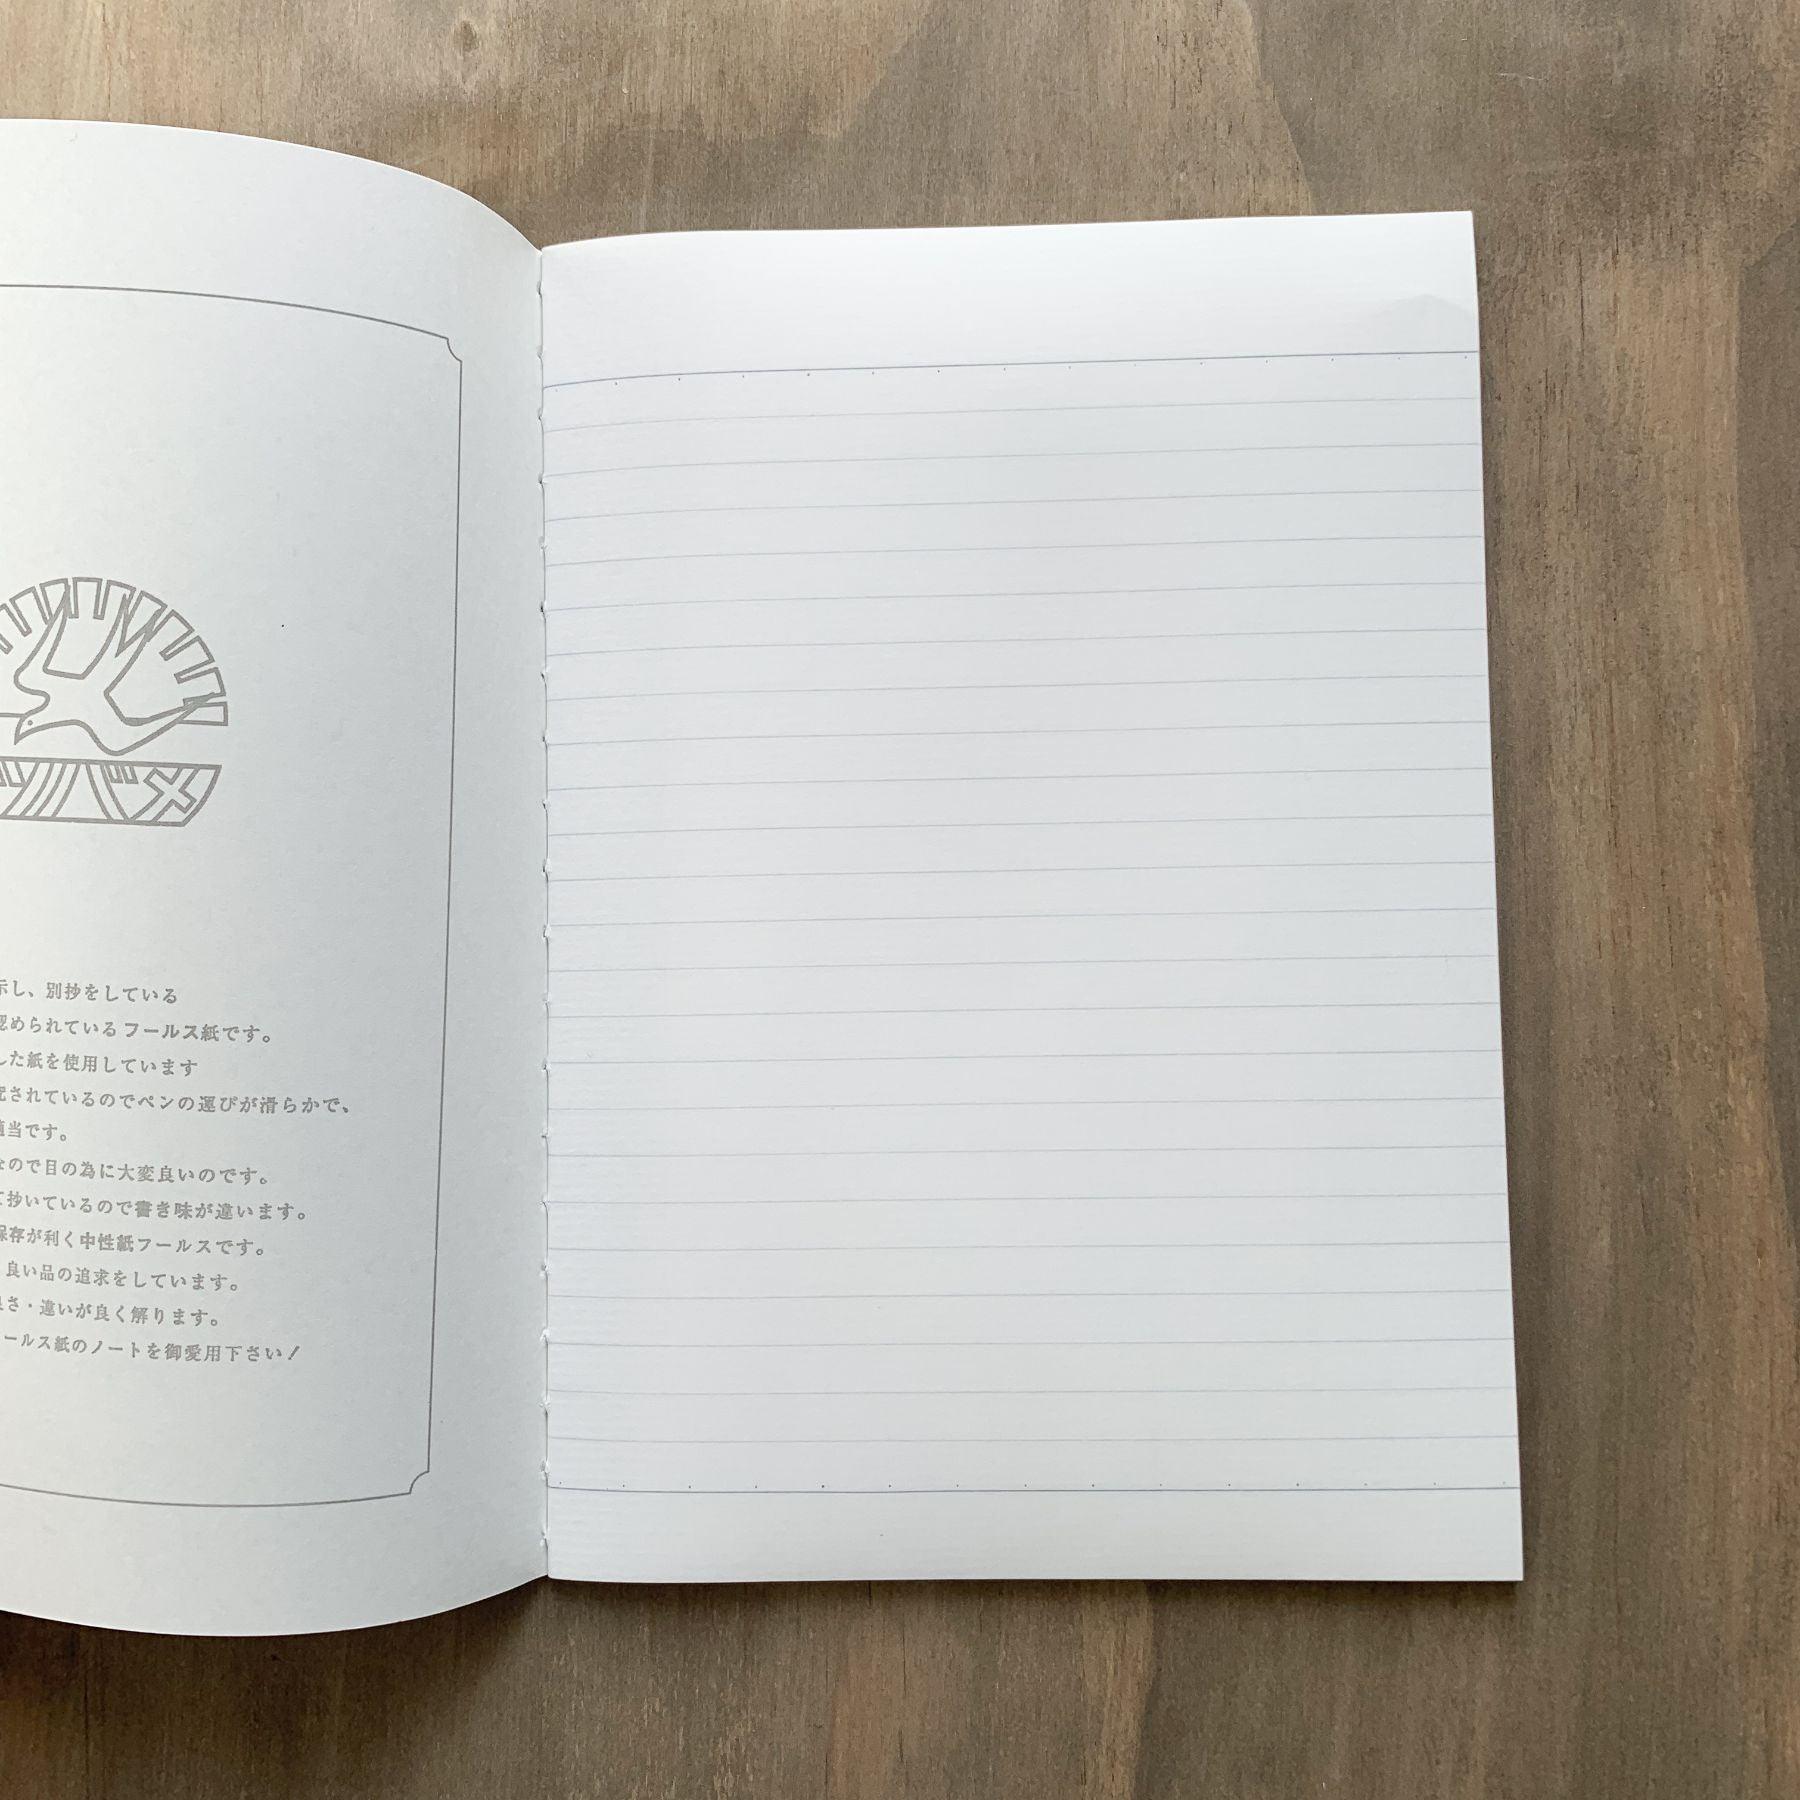 ツバメ
示し、別抄をしている
認められているフールス紙です。
した紙を使用しています
究されているのでペンの運びが滑らかで、
適当です。
なので目の為に大変良いのです。
て抄いているので書き味が違います。
保存が利く中性紙フールスです。
良い品の追求をしています。
良さ・違いが良く解ります。
フールス紙のノートを御愛用下さい！